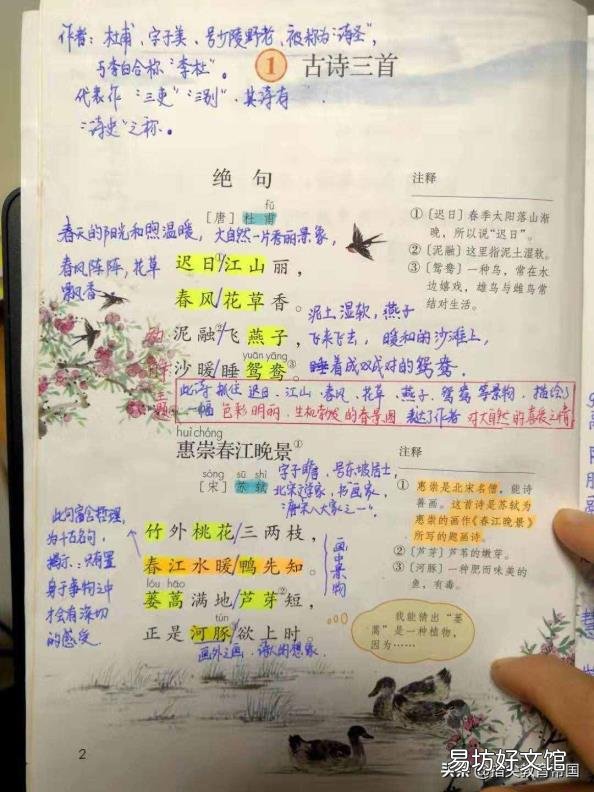 作者：杜甫、字子美、号少陵野老、被称为"诗圣"，
与李白合称"李杜"。
代表作"三吏""三别"．其诗有
"诗史"之称。
1 古诗三首
绝句
fǔ
［唐］杜甫
春天的阳光和照温暖，大自然一片秀丽景象，
春风阵阵，花草
飘香
迟日/江山丽，
春风/花草香。
泥融②/飞燕子，
yuān yāng
沙暖/睡鸳鸯③。
泥土湿软，燕子
飞来飞去，暖和的沙滩上，
睡着成双成对的鸳鸯．
注释
①［迟日］春季太阳落山渐
晚，所以说“迟日”。
②［泥融］这里指泥土湿软。
③［鸳鸯］一种鸟，常在水
边嬉戏，雄鸟与雌鸟常
结对生活。
此诗抓住迟日、江山、春风、花草、燕子、鸳鸯等景物．描绘了
一幅色彩明丽．生机勃勃的春景图表达了作者对大自然的喜爱之情
huì chóng
惠崇春江晚景①
sòng sū shì
［宋］苏轼
字子瞻，号东坡居士，
北宋文学家，书画家，
唐宋八大家之一。
竹外桃花/三两枝，
春江水暖/鸭先知。
lóu hāo
蒌蒿满地/芦芽②短，
tún
正是河豚③/欲上时。
画中景物
画外之画．诗人的想象．
此句富含哲理，
为千古名句，
揭示：只有置
身于事物之中
才会有深切
的感受
注释
①惠崇是北宋名僧，能诗
善画。这首诗是苏轼为
惠崇的画作《春江晚景》
所写的题画诗。
②［芦芽］芦苇的嫩芽。
③［河豚］一种肥而味美的
鱼，有毒。
我能猜出“蒌
蒿”是一种植物，
因为……
2
易坊好文馆
头条@指尖教育帝国